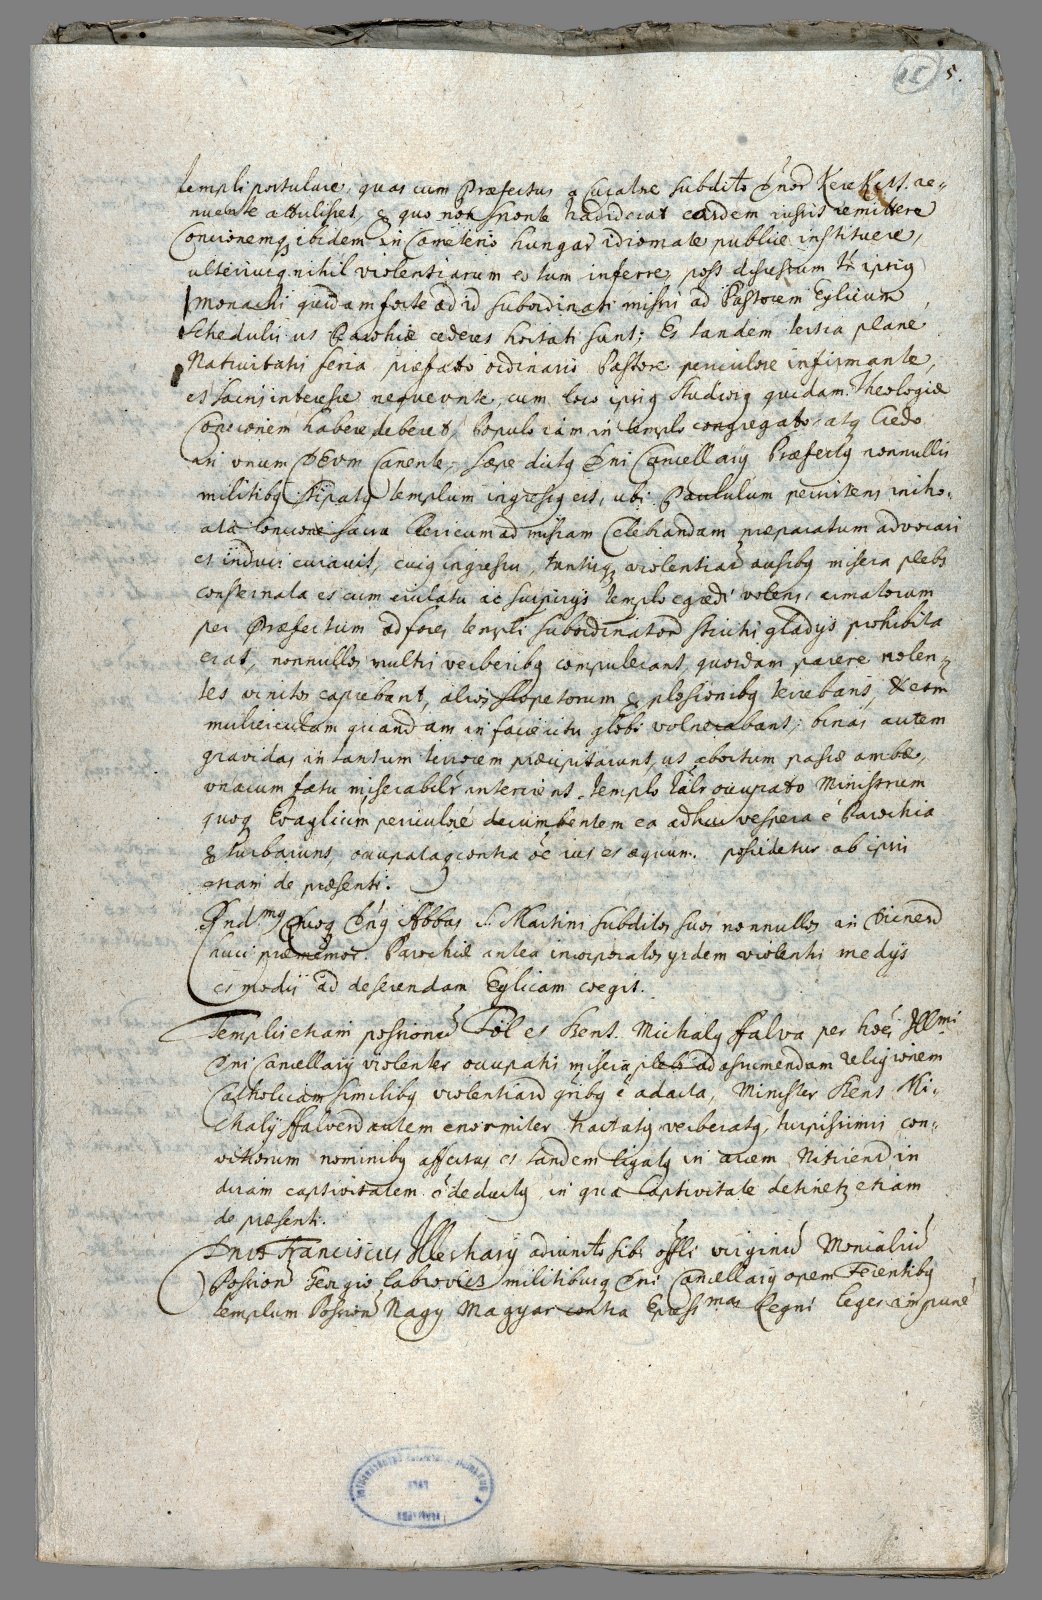 5.
templi postulare, quas cum Præfectus a
nuente attulisset, & quo non sponte tradiderat eosdem iussit remittere
Concionemq ibidem in Cæmeterio hungar idiomate publice instituere,
ulteriusq nihil violentiarum es tum inferre, post discessum tn ipsiq
monachi quidam forte ad id subordinati missi ad Pastorem Eglicum,
schedulis ut Parochiæ cederet hortati sunt; Et tandem tertia plane
Nativitatis feria præfato ordinario Pastore periculose infirmante,
et sacris interesse nequeunte, cum loco ipsiq studiosq quidam Theologiæ
Concionem habere deberet, Populo iam in templo congregato, atq Credo
in unum DEum Canente, sæpe dictq Dni Cancellarij Præfectq nonnullis
militibq stipatq templum ingressq est, ubi Paululum persistens inho-
ata Concione sacra Clericum ad missam Celebrandam præparatum advocari
et indui curavit, cuiq ingressu, tantisq violentiar ausibq misera plebs
consternata et cum eiulatu ac suspirijs templo egredi volens, armatorum
per Præfectum ad fores templi subordinator strictis gladijs prohibita
erat, nonnullos multis verberibq compulerant, quosdam parere nolen-
tes vinctos capiebant, alios sclopetorum explosionibq terrebant, & etm
mulierculam quandam in facie ictu globi volnerabant; binas autem
gravidas in tantum terrorem præcipitarunt, ut abortum passæ ambæ,
unacum fætu miserabilr interirent. templo talr occupato Ministrum
quoq Evaglicum periculose decumbentem ea adhuc vespera e Parochia
exturbarunt, occupataq contra oe ius et æquum. possidetur ab ipsis
etiam de præsenti.
Rndmq quoq Dnq Abbas S. Martini subditos suos nonnullos in
præmemor. Parochiæ antea incorporatos ijsdem violentis medijs
et modis ad deserendam Eglicam coegit.
Templis etiam possionu Föl et Szent Michaly ffalva per Illmi
Dni Cancellarij violenter occupatis misera plebs ad assumendam religionem
Catholicam similibq violentiar gribq e adacta, Minister Szent Mi-
chaly ffalven autem enormiter tractatq verberatq, turpissimis con-
vitiorum nominibq affectus et tandem ligatq in arcem Nitrien in
diram captivitatem e deductq in qua Captivitate detinetq etiam
de præsenti.
Dnus Franciscus Illeshazij adiuncto sibi offli virginu Monialiu
Posonien Georgio militibusq Dni Cancellarij opem ferentibq
templum Possionis Nagy Magyar contra Expressmas Regni leges impune